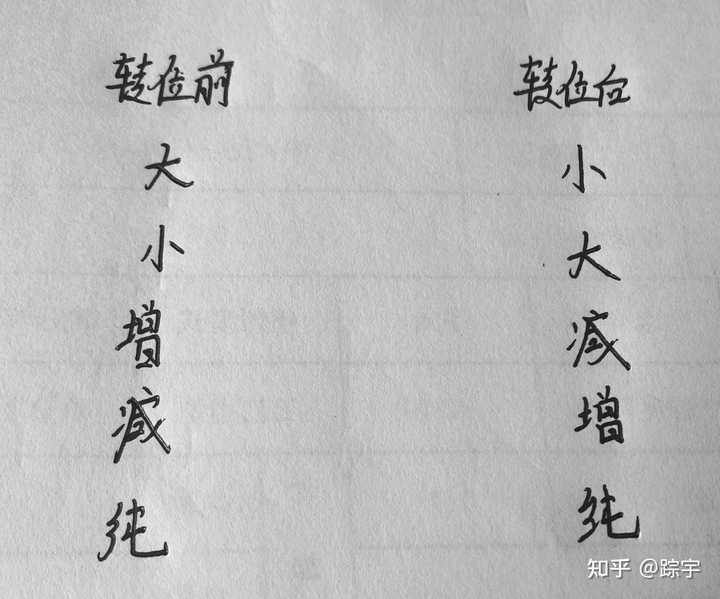 转位前 转位后
大 小
小 大
增 减
减 增
纯 纯
知乎 @踪宇